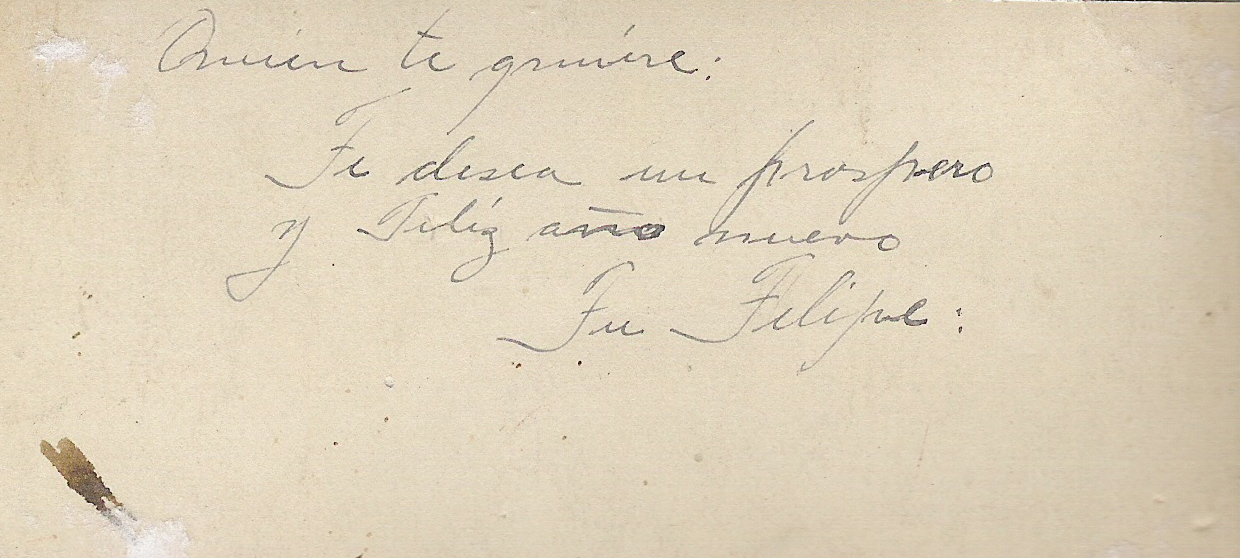 Quien te quiére:
Te desea un prospero
y Feliz año nuevo
Tu Felipe: